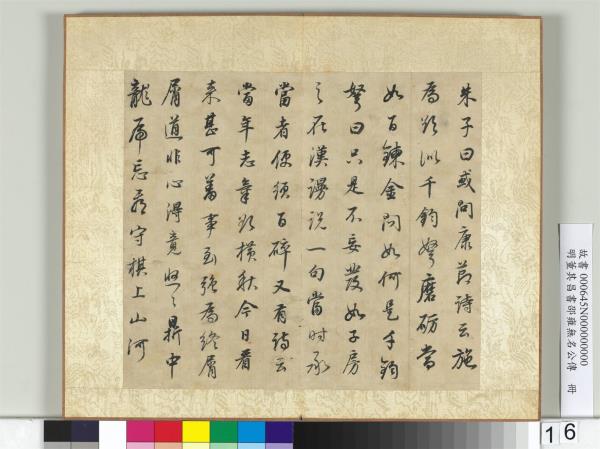 朱子曰或問康節詩云施
為欲似千鈞弩磨礪當
如百鍊金問如何是千鈞
弩曰只是不妄發如子房
之在漢謾說一句當時承
當者便須百碎又有詩云
當年志氣欲橫秋今日看
来甚可羞事至強為終屑
屑道非心得竟悠々鼎中
龍虎忘看守棋上山河
故書000645N000000000
明董其昌書邵雍無名公傳 冊
16